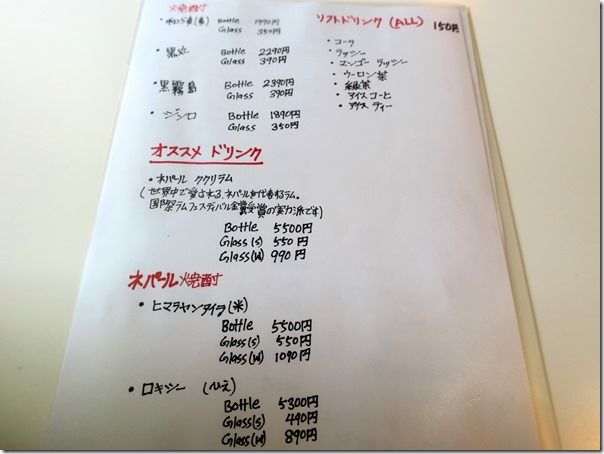 焼酎
・和ら麦(麦) Bottle 1990円
Glass 350円
・黒丸 Bottle 2290円
Glass 390円
・黒霧島 Bottle 2390円
Glass 390円
・ジンロ Bottle 1890円
Glass 350円
ソフトドリンク (ALL) 150円
・コーラ
・ラッシー
・マンゴー ラッシー
・ウーロン茶
・緑茶
・アイス コーヒ
・アイス ティー
オススメ ドリンク
・ネパール ククリラム
(世界中で愛される、ネパールを代表するラム。
国際ラムフェスティバル金賞受賞の実力派です)
Bottle 5500円
Glass(S) 550円
Glass(W) 990円
ネパール焼酎
・ヒマラヤンタイラ(米)
Bottle 5500円
Glass(S) 550円
Glass(W) 1090円
・ロキシー (ひえ)
Bottle 5300円
Glass(S) 490円
Glass(W) 890円